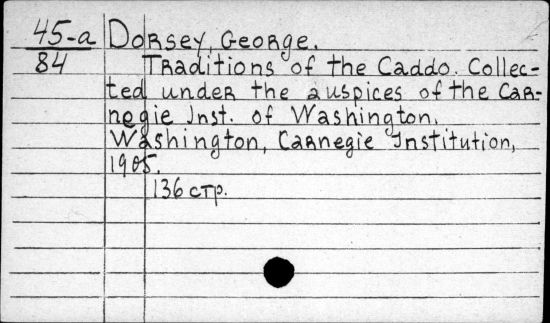 45-a Dorsey, George.
84 Traditions of the Caddo. Collec-
ted under the auspices of the Car-
negie Inst. of Washington.
Washington, Carnegie Institution,
1905.
136 стр.